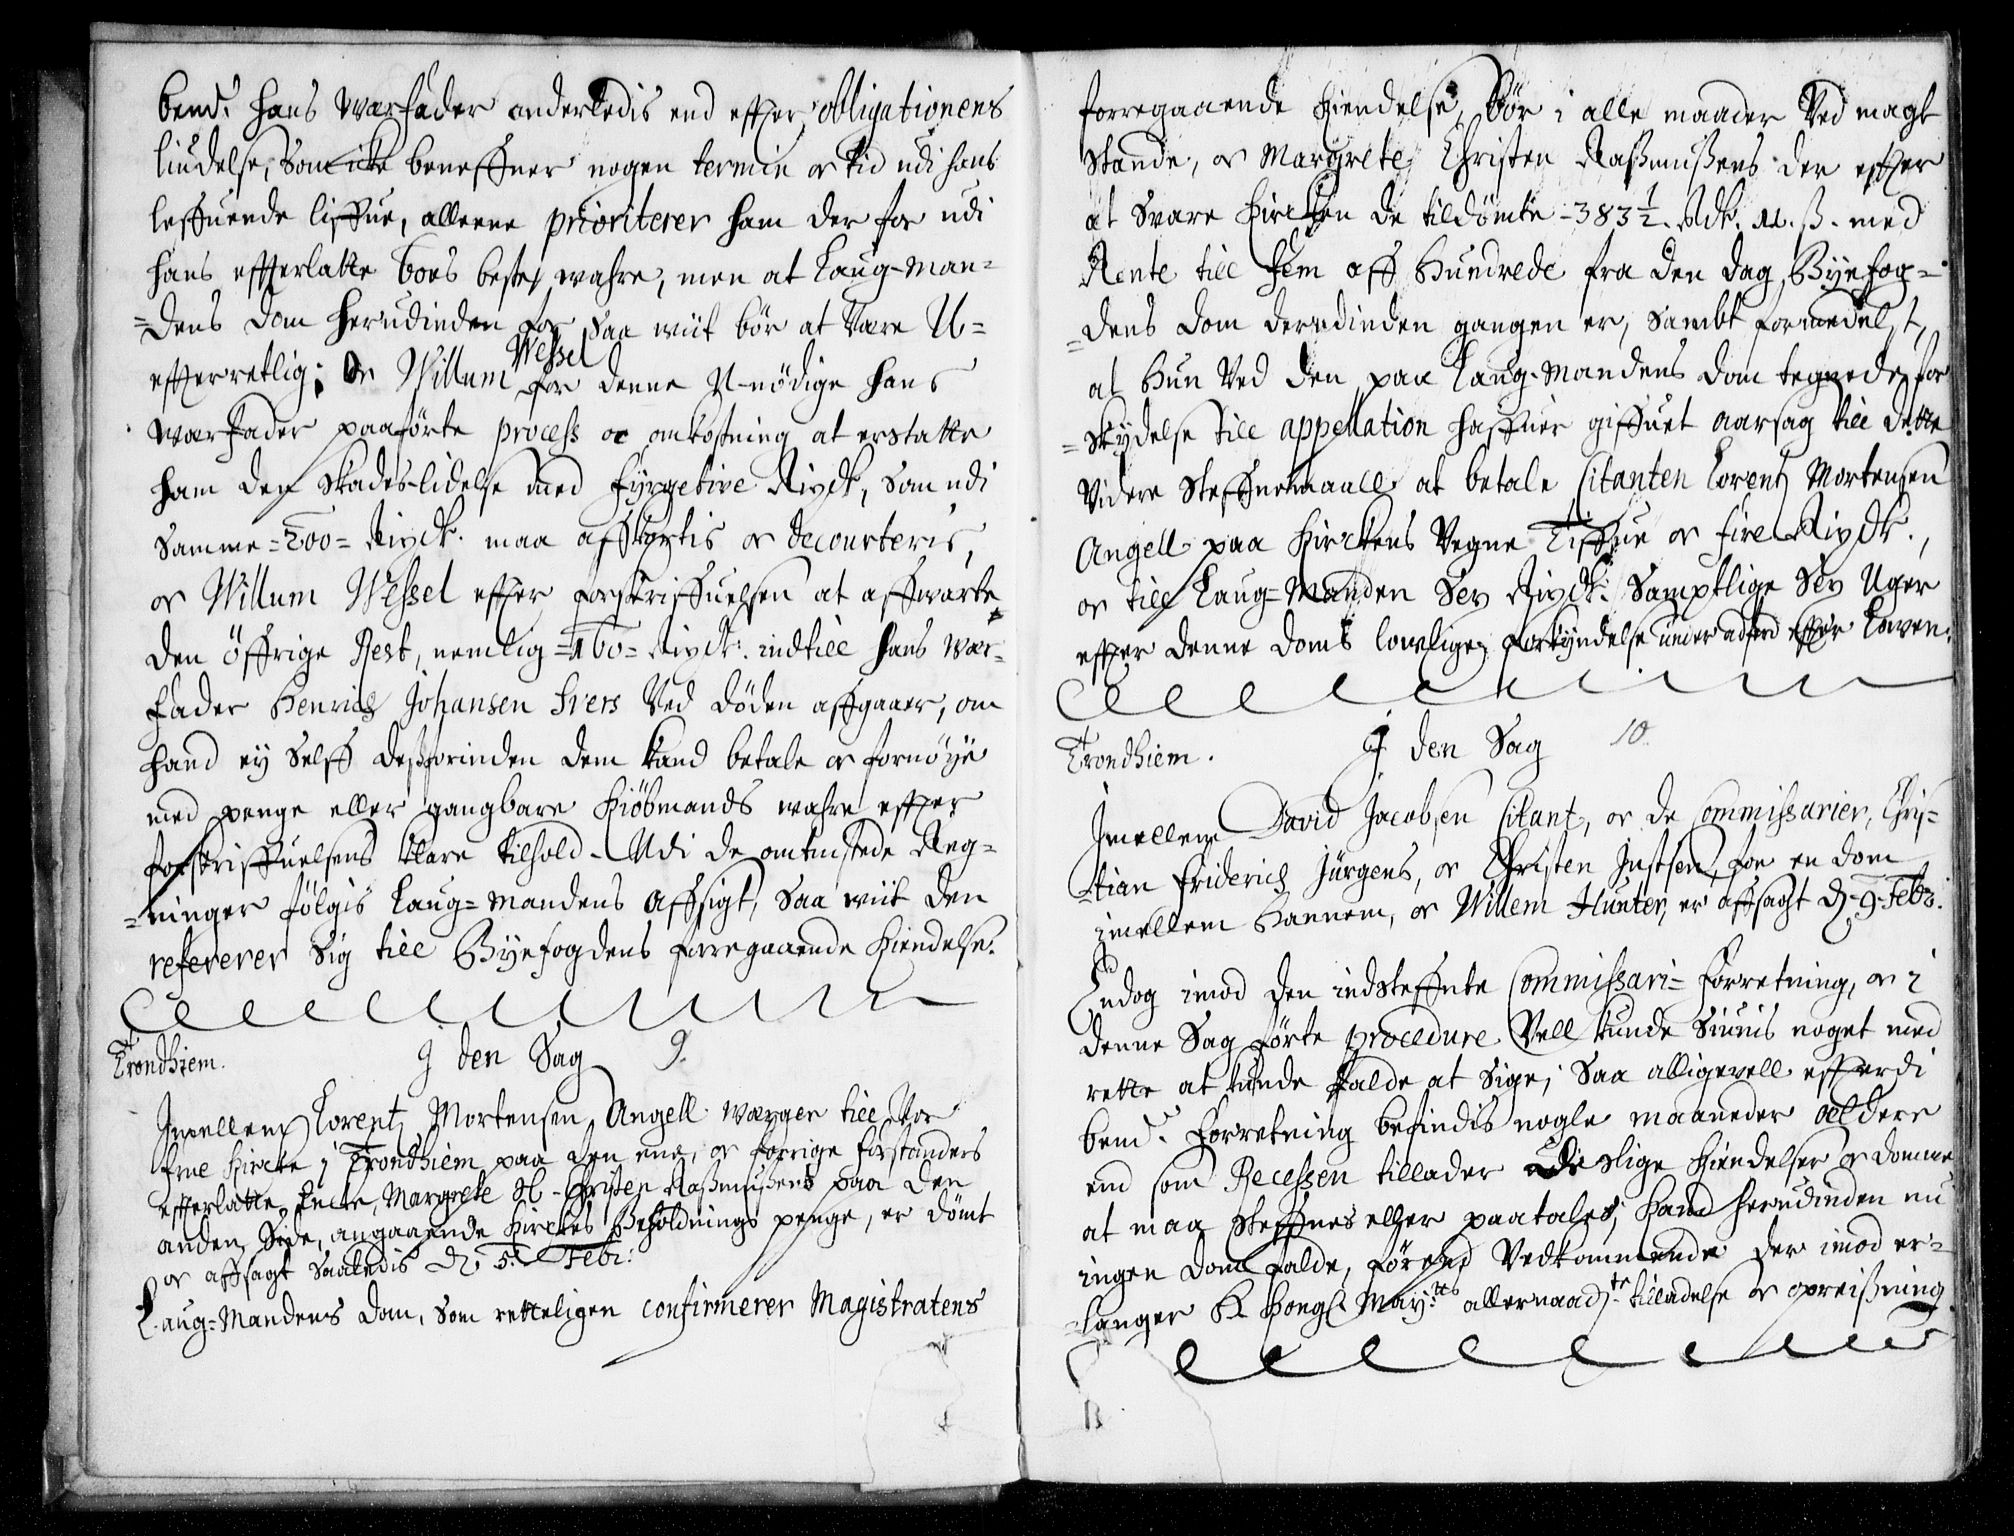 bemt. hans Warfader anderledis end effter obligationens
liudelse, Som icke beneffner nogen termin oc tid udi hans
leffuende liffue, alleene prioriterer ham der for udi
hans effterlatte boes beste wahre, men at Laug-Man-
=dens dom herudinden for saa wiit bör at være U=
effterretlig; Oc Willum Wessel for denne U-nödige hans
Warfader paaförte process oc omkostning at erstatte
ham den skades-lidelse med fyrgetive Rixdr, Som udi
Samme =200= Rixdr. maa affkortis oc decourteris,
oc Willum Wessel effter forskriffuelsen at affwarte
den öffrige Rest, nemlig =160= Rixdr. indtill hans War-
fader Henrich Johansen Siers Ved döden affgaaer, om
hand ey Selff dessforinden dem kand betale oc fornöye
med penge eller gangbare Kiöbmands wahre effter
forskriffuelsens klare tilhold. Udi de omtuistede Reg=
=ninger fölgis Laug=Mandens Affsigt, Saa wiit den
refererer Sig till Byefogdens forregaaende Kiendelse.
Trondhiem. I den Sag 9.
Imellem Lorentz Mortensen Angell Wærger till Vor
frue Kircke i Trondhiem paa den ene, oc forrige forstanders
effterlatte Encke, Margrete Sl- Christen Rassmussens paa den
anden Side, angaaende Kirckes Beholdnings penge, er dömt
oc affsagt Saaledis d. 5. Febr:
Laug=Mandens Dom, Som retteligen confirmerer Magistratens
forregaaende Kiendelse, bör i alle maader Ved magt
Stande, oc Margrete Christen Rassmussens der effter
at Svare Kircken de tildömte -383½. Rdr. ß. med
Rente till fem aff Hundrede fra den dag Byefog-
=dens dom derudinden gangen er, Sambt formedelst,
at Hun Ved den paa Laug-Mandens dom tegnede for
=skydelse till appellation haffuer giffuet aarsag till dette
Videre Steffnemaall at betale Citanten Lorentz Mortensen
Angell paa Kirckens Vegne Tiffue oc fire Rixdr.,
oc till Laug=Manden Sex Rixdr: Samptlige Sex Uger
effter denne doms lowlige forkyndelse under adferd effter Lowen.
Trondhiem. I den Sag 10.
Imellem David Jacobsen Citant, oc de Commissarier, Chris=
=tian Friderich Jürgens, oc Christen Justsen, for en dom
imellem Hannem, oc Willem Hunter, er affsagt d. 9. Febr.
Endog imod den indsteffnte Commissari= forretning, oc i
denne Sag förte procedure Vell kunde Siunis noget med
rette at kunde falde at Sige; Saa alligevell effterdi
bemt. forretning befindis nogle maaneder ældere
end som Recessen tillader udi slige Kiendelser oc domme
at maa Steffnes eller paatales; Kand herudinden nu
ingen dom falde, förend Vedkommende der imod er=
=langer K Kongl May:tts allernaad:te tilladelse oc opreissning